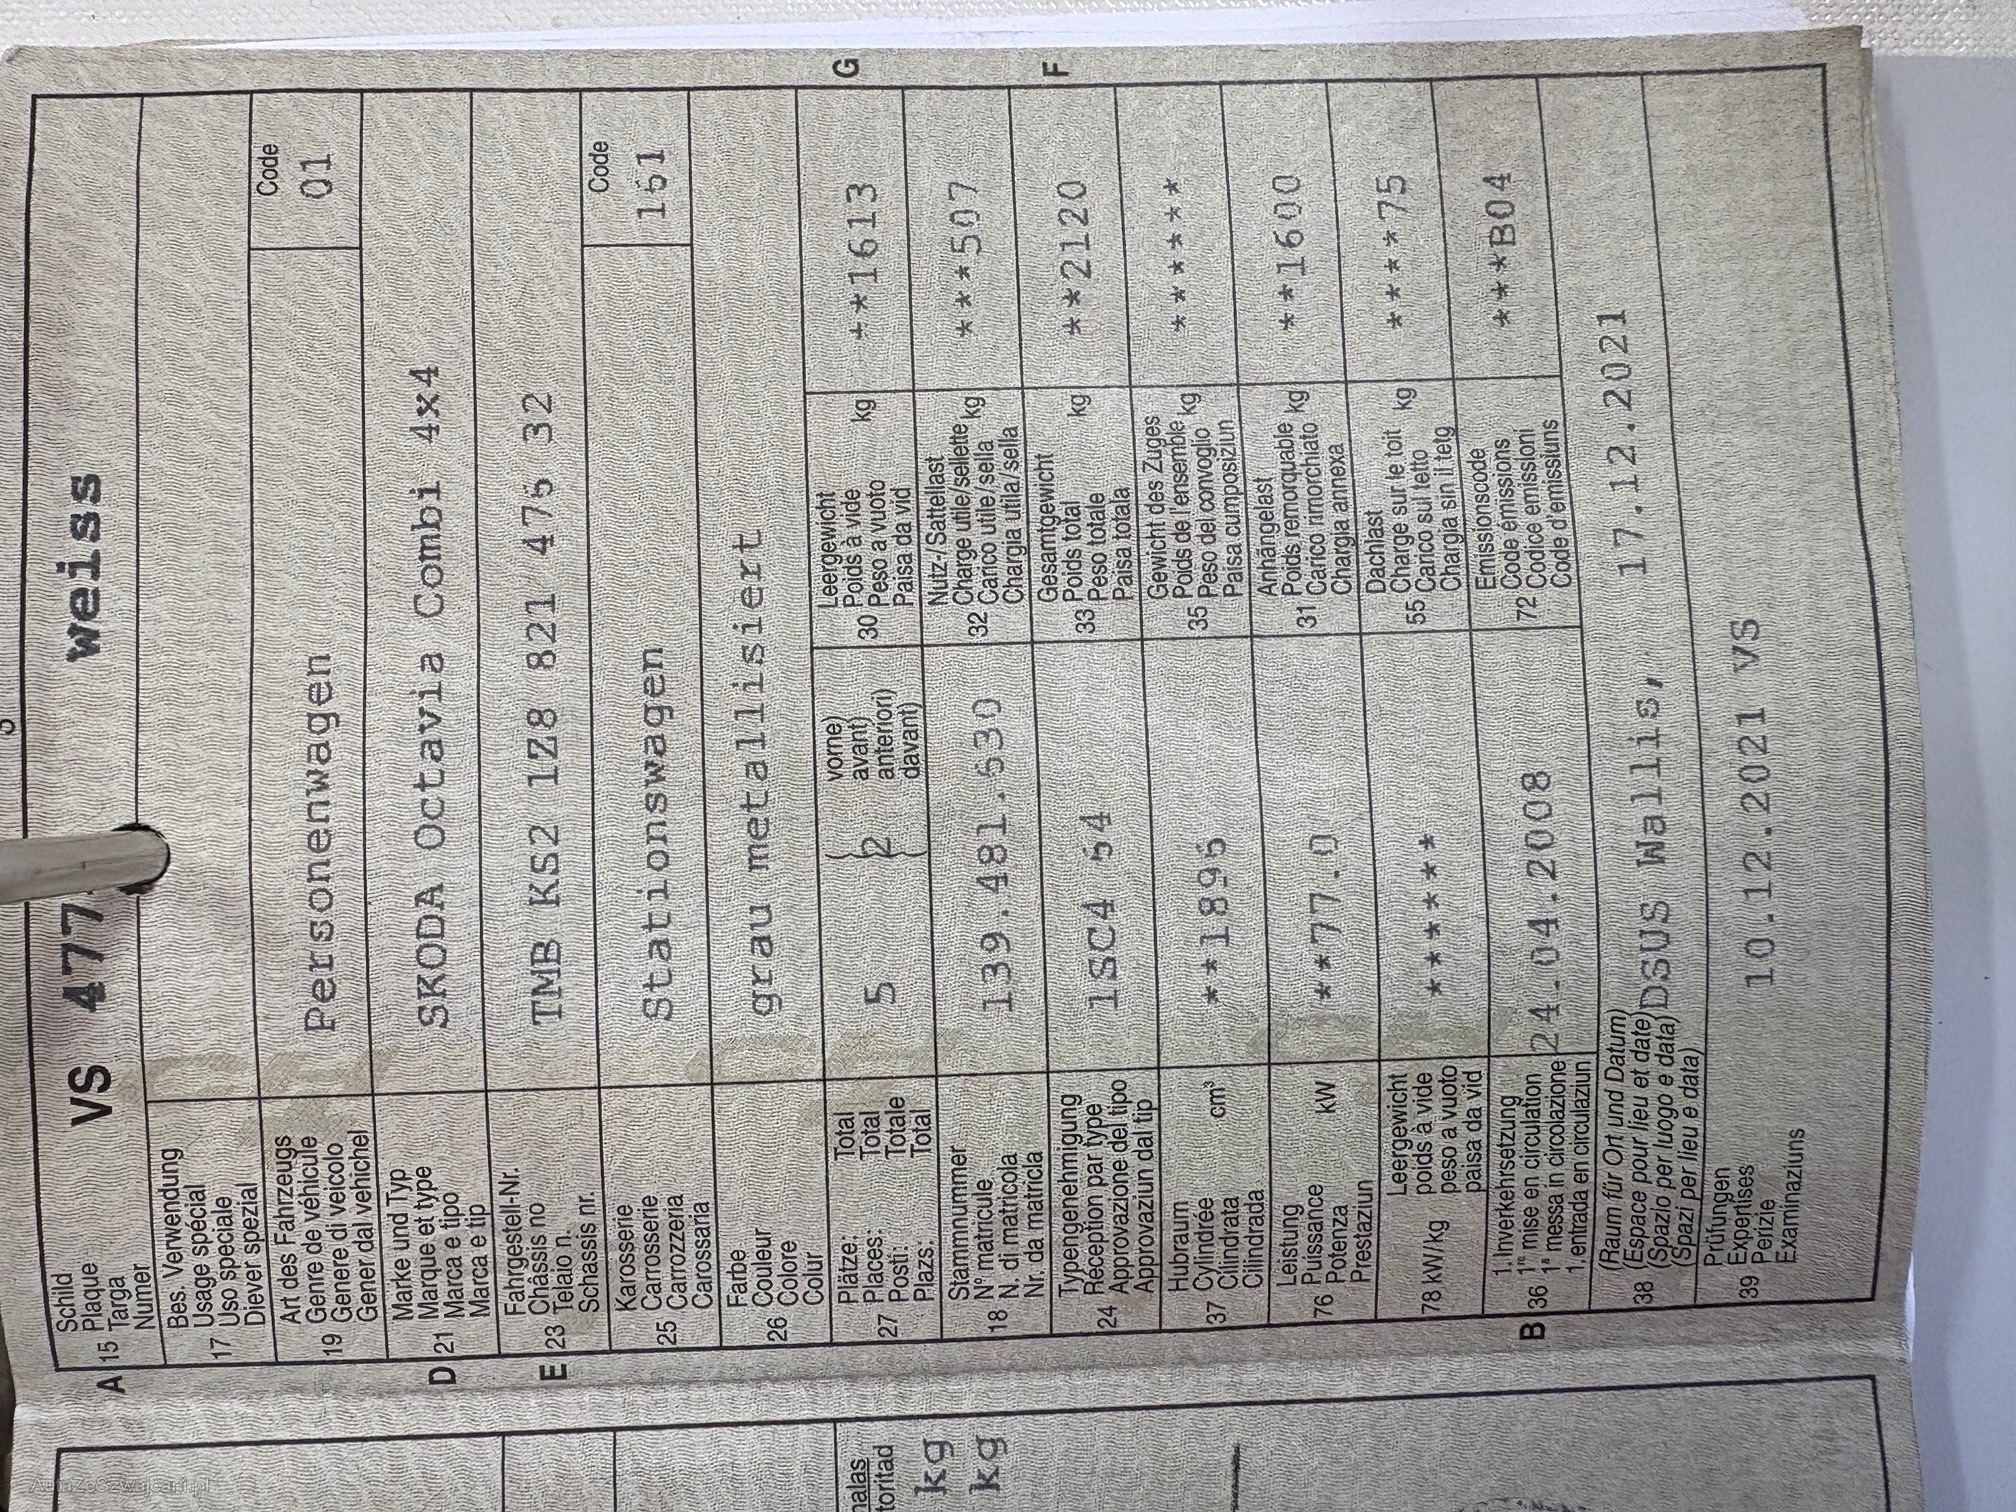 A 15 Schild VS 477 weiss
Plaque
Targa
Numer
17 Bes. Verwendung
Usage spécial
Uso speciale
Diever spezial
19 Art des Fahrzeugs Personenwagen Code 01
Genre de véhicule
Genere di veicolo
Gener dal vehichel
D 21 Marke und Typ SKODA Octavia Combi 4x4
Marque et type
Marca e tipo
Marca e tip
E 23 Fahrgestell-Nr. TMB KS2 1Z8 821 475 32
Châssis no
Telaio n.
Schassis nr.
25 Karosserie Stationswagen Code 151
Carrosserie
Carrozzeria
Carossaria
26 Farbe grau metallisiert
Couleur
Colore
Colur
27 Plätze: Total 5 2 vorne)
Places: Total avant)
Posti: Totale anteriori)
Plazs: Total davant)
30 Leergewicht kg **1613 G
Poids à vide
Peso a vuoto
Paisa da vid
18 Stammnummer 139.481.530
N° matricule
N. di matricola
Nr. da matricla
32 Nutz-/Sattellast kg ***507
Charge utile/sellette
Carico utile/sella
Chargia utila/sella
24 Typengenehmigung 1SC4 54
Réception par type
Approvazione del tipo
Approvaziun dal tip
33 Gesamtgewicht kg **2120 F
Poids total
Peso totale
Paisa totala
37 Hubraum cm³ **1896
Cylindrée
Cilindrata
Cilindrada
35 Gewicht des Zuges kg ******
Poids de l'ensemble
Peso del convoglio
Paisa cumposiziun
76 Leistung kW **77.0
Puissance
Potenza
Prestaziun
31 Anhängelast kg **1600
Poids remorquable
Carico rimorchiato
Chargia annexa
78 kW/kg Leergewicht ******
poids à vide
peso a vuoto
paisa da vid
55 Dachlast kg ****75
Charge sur le toit
Carico sul tetto
Chargia sin il tetg
B 36 1. Inverkehrsetzung 24.04.2008
1re mise en circulation
1a messa in circolazione
1. entrada en circulaziun
72 Emissionscode ***B04
Code émissions
Codice emissioni
Code d'emissiuns
38 (Raum für Ort und Datum)
(Espace pour lieu et date) DSUS Wallis, 17.12.2021
(Spazio per luogo e data)
(Spazi per lieu e data)
39 Prüfungen 10.12.2021 VS
Expertises
Perizie
Examinaziuns
kg
kg
AutaZeSzwajcarii.pl